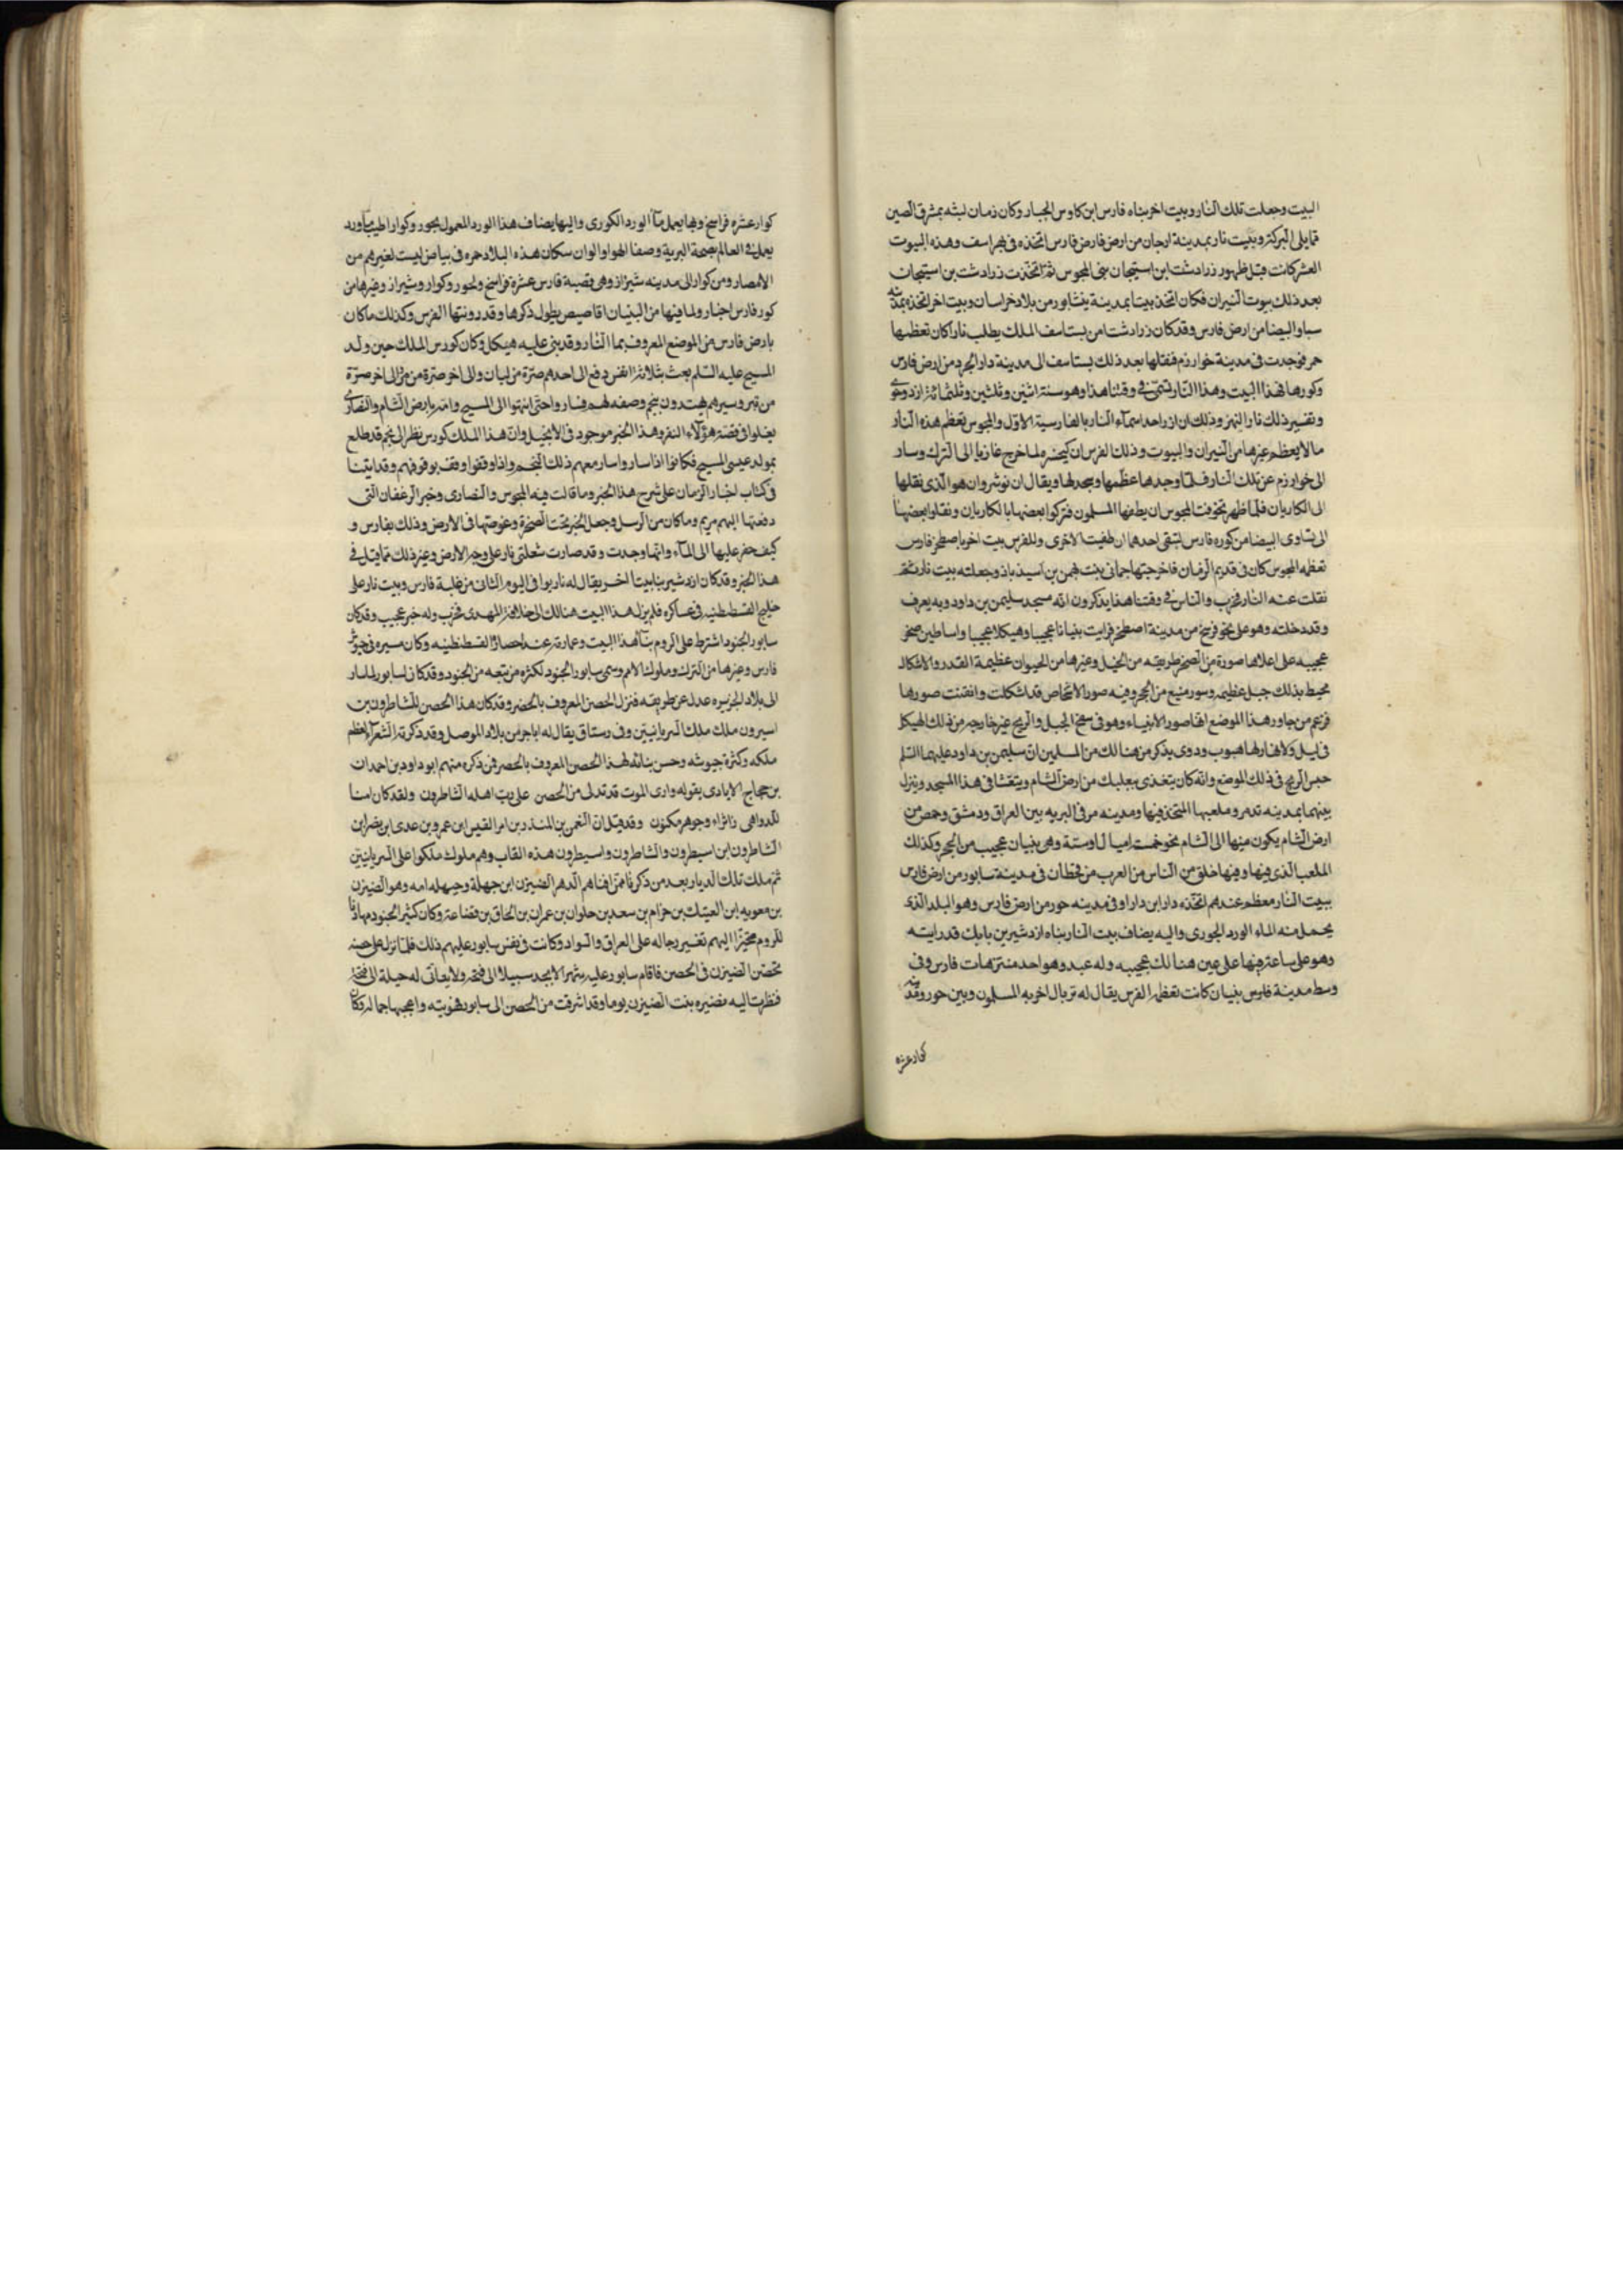 البيت وجعلت تلك النار وبيت اخر بناه فارس ابن كاوس الجبار وكان زمان لبثه بمشرق الصين
مما يلى البركة وبيت نار بمدينة ارجان من ارض فارس اتخذه فى بهراسف وهذه البيوت
العشر كانت قبل ظهور زرادشت ابن استيجان نبى المجوس ثم اتخذت زرادشت بن استيجان
بعد ذلك بيوت النيران فكان اتخذ بيتا بمدينة نيشابور من بلاد خراسان وبيت اخر اتخذه بمدينة
سبا والبيضا من ارض فارس وقد كان زرادشت امن بستاسف الملك يطلب نارا كان تعظمها
حر فوجدت فى مدينة خوارزم فنقلها بعد ذلك بستاسف الى مدينة دار ابجرد من ارض فارس
وكورها فهذا البيت وهذا النار تسمى فى وقتنا هذا وهو سنة اثنين وثلثين وثلثمائة ازدوجى
وتفسير ذلك نار النهر وذلك ان از احد اسماء النار بالفارسية الاول والمجوس تعظم هذه النار
مالا يعظم غيرها من النيران والبيوت وذلك الفرس ان كيخسر ولما خرج غازيا الى الترك وسار
الى خوارزم عن تلك النار فلما وجدها عظمها وسجد لها ويقال ان نوشروان هو الذى نقلها
الى الكاريان فلما ظهر تخوفت المجوس ان يطفها المسلمون فتركوا بعضها بالكاريان ونقلوا بعضها
الى نشاوى البيضا من كوره فارس لتبقى احدهما ان طفيت الاخرى وللفرس بيت اخر باصطخر فارس
تعظمه المجوس كان فى قديم الزمان فاخرجتها حمانى بنت بهمن بن اسيدباذ وجعلته بيت نار ثم
نقلت عنه النار فخرب والناس فى وقتنا هذا يذكرون انه مسجد سليمن بن داود وبه يعرف
وقد دخلته وهو على نحو فرسخ من مدينة اصطخر فرايت بنيانا عجيبا وهيكلا عجيبا واساطين صخر
عجيبه على اعلاها صورة من الصخر طريقه من الخيل وغيرها من الحيوان عظيمة القدر والاشكال
محيط بذلك جبل عظيم وسور منيع من الحجر وفيه صور الاشخاص قد شكلت واتقنت صورها
فزعم من جاور هذا الموضع انها صور الانبياء وهو فى سفح الجبل والريح غير خارجه من ذلك الهيكل
فى ليل ولا نهار لها هبوب ودوى يذكر من هنالك من المسلمين ان سليمن بن داود عليهما السلم
حبس الريح فى ذلك الموضع وانه كان يتغدى ببعلبك من ارض الشام ويتعشا فى هذا المسجد وينزل
بينهما بمدينه تدمر وملعبها المتخذ فيها ومدينه مر فى البريه بين العراق ودمشق وحمص من
ارض الشام يكون منها الى الشام نحو خمسة اميال او ستة وهى بنيان عجيب من الحجر وكذلك
الملعب الذى فيها وفيها خلق من الناس من العرب من قحطان فى مدينة سابور من ارض فارس
ببيت النار معظم عندهم اتخذه دارا بن دارا وفى مدينه جور من ارض فارس وهو البلد الذى
يحمل منه الماء الورد الجورى واليه يضاف بيت النار بناه ازدشير بن بابك قد رايته
وهو على ساعة منها على عين هنالك عجيبه وله عيد وهو احد منتزهات فارس وفى
وسط مدينة فارس بنيان كانت تعظمه الفرس يقال له تربال اخربه المسلمون وبين جور وقد
كوار عشره
كوار عشره فراسخ وبها يعمل ماء الورد الكورى واليها يضاف هذا الورد المعمول بجور وكوار اطيب ماورد
يعمل فى العالم بصحة البرية وصفا الهوا والوان سكان هذه البلاد حمره فى بياض ليست لغيرهم من
الامصار ومن كوار الى مدينه شيراز وهى قصبة فارس عشرة فراسخ ولجور وكوار وشيراز وغيرها من
كور فارس اخبار ولما فيها من البنيان اقاصيص يطول ذكرها وقد دونتها الفرس وكذلك ما كان
بارض فارس من الموضع المعروف بما النار وقد بنى عليه هيكل وكان كورس الملك حين ولد
المسيح عليه السلم بعث بثلاثة انفس دفع الى احدهم صرة من لبان والى اخر صرة من مر والى اخر صرة
من تبر وسيرهم يهتدون بنجم وصفه لهم فساروا حتى انتهوا الى المسيح وامه بارض الشام والنصارى
يغلوا فى قصة هؤلاء النفر وهذا الخبر موجود فى الانجيل وان هذا الملك كورس نظر الى نجم قد طلع
بمولد عيسى المسيح فكانوا اذا ساروا سار معهم ذلك النجم واذا وقفوا وقف بوقوفهم وقد اتينا
فى كتاب اخبار الزمان على شرح هذا الخبر وما قالت فيه المجوس والنصارى وخبر الرغفان التى
دفعتها اليهم مريم وما كان من الرسل وجعل الخبز تحت الصخرة وغوصتها فى الارض وذلك بفارس و
كيف حفر عليها الى الماء وانها وجدت وقد صارت شعلتى نار على وجه الارض وغير ذلك مما قيل فى
هذا الخبر وقد كان ازدشير بنا بيتا اخر يقال له نار بوا فى اليوم الثانى من غلبة فارس وبيت نار على
خليج القسطنطنيه فى عساكره فلم يزل هذا البيت هنالك الى خلافة المهدى فخرب وله خبر عجيب وقد كان
سابور الجنود اشترط على الروم بناء هذا البيت وعمارته عند احصاره القسطنطنيه وكان مسيره فى جيوش
فارس وغيرها من الترك وملوك الامم وسمى سابور الجنود لكثره من تبعه من الجنود وقد كان لسابور لما سار
الى بلاد الجزيره عدل عن طريقه فنزل الحصن المعروف بالحضر وقد كان هذا الحصن للشاطرون بن
اسيرون ملك ملك السريانيين وفى رستاق يقال له اباجر من بلاد الموصل وقد ذكرته الشعراء لعظم
ملكه وكثرة جيوشه وحسن بنائه لهذا الحصن المعروف بالحصر فمن ذكره منهم ابو داود بن احمدان
بن حجاج الايادى بقوله وارى الموت قد تدلى من الحصن على رب اهله الشاطرون ولقد كان امنا
للدواهى ذا ثراء وجوهر مكنون وقد قيل ان النعمن بن المنذر بن امر القيس ابن عمرو بن عدى ابن نصر ابن
الشاطرون ابن اسيطرون والشاطرون واسيطرون هذه القاب وهم ملوك ملكوا على السريانيين
ثم ملك تلك الديار بعد من ذكرنا ممن افناهم الدهر الضيزن ابن جهلة وجيهله امه وهو الضيزن
بن معويه ابن العبيك بن حزام بن سعد بن حلوان بن عمران بن الحاق بن قضاعة وكان كثير الجنود مهادنا
للروم متحيزا اليهم تغير رجاله على العراق والسواد وكانت فى نفس سابور عليهم ذلك فلما نزل على حصنه
تحصن الضيزن فى الحصن فاقام سابور عليه شهرا لا يجد سبيلا الى فتحه ولا يعانى له حيلة الى فتحه
فنظرت اليه نضيره بنت الضيزن يوما وقد اشرفت من الحصن الى سابور فهويته واعجبها جماله وكان